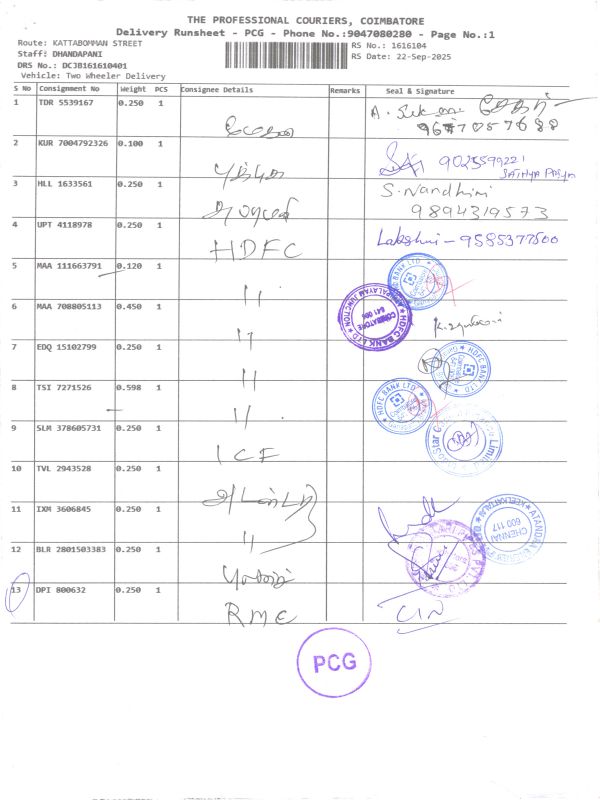 THE PROFESSIONAL COURIERS, COIMBATORE
Delivery Runsheet - PCG - Phone No.:9047080280 - Page No.:1
Route: KATTABOMMAN STREET
RS No.: 1616104
Staff: DHANDAPANI
RS Date: 22-Sep-2025
DRS No.: DCJB161610401
Vehicle: Two Wheeler Delivery
S No Consignment No Weight PCS Consignee Details Remarks Seal & Signature
1 TDR 5539167 0.250 1
2 KUR 7004792326 0.100 1 9025599221
SATHYA PRIYA
3 HLL 1633561 0.250 1 S.Nandhini
9894319573
4 UPT 4118978 0.250 1 HDFC Lakshmi - 9585377500
5 MAA 111663791 0.120 1 11
HDFC BANK LTD
6 MAA 708805113 0.450 1 11
HDFC BANK LTD
COIMBATORE
641 006
7 EDQ 15102799 0.250 1 11
HDFC BANK LTD
8 TSI 7271526 0.598 1 11
HDFC BANK LTD
9 SLM 378605731 0.250 1 ICF
10 TVL 2943528 0.250 1
11 IXM 3606845 0.250 1 11
CHENNAI
600 117
12 BLR 2801503383 0.250 1
13 DPI 800632 0.250 1 RME
PCG